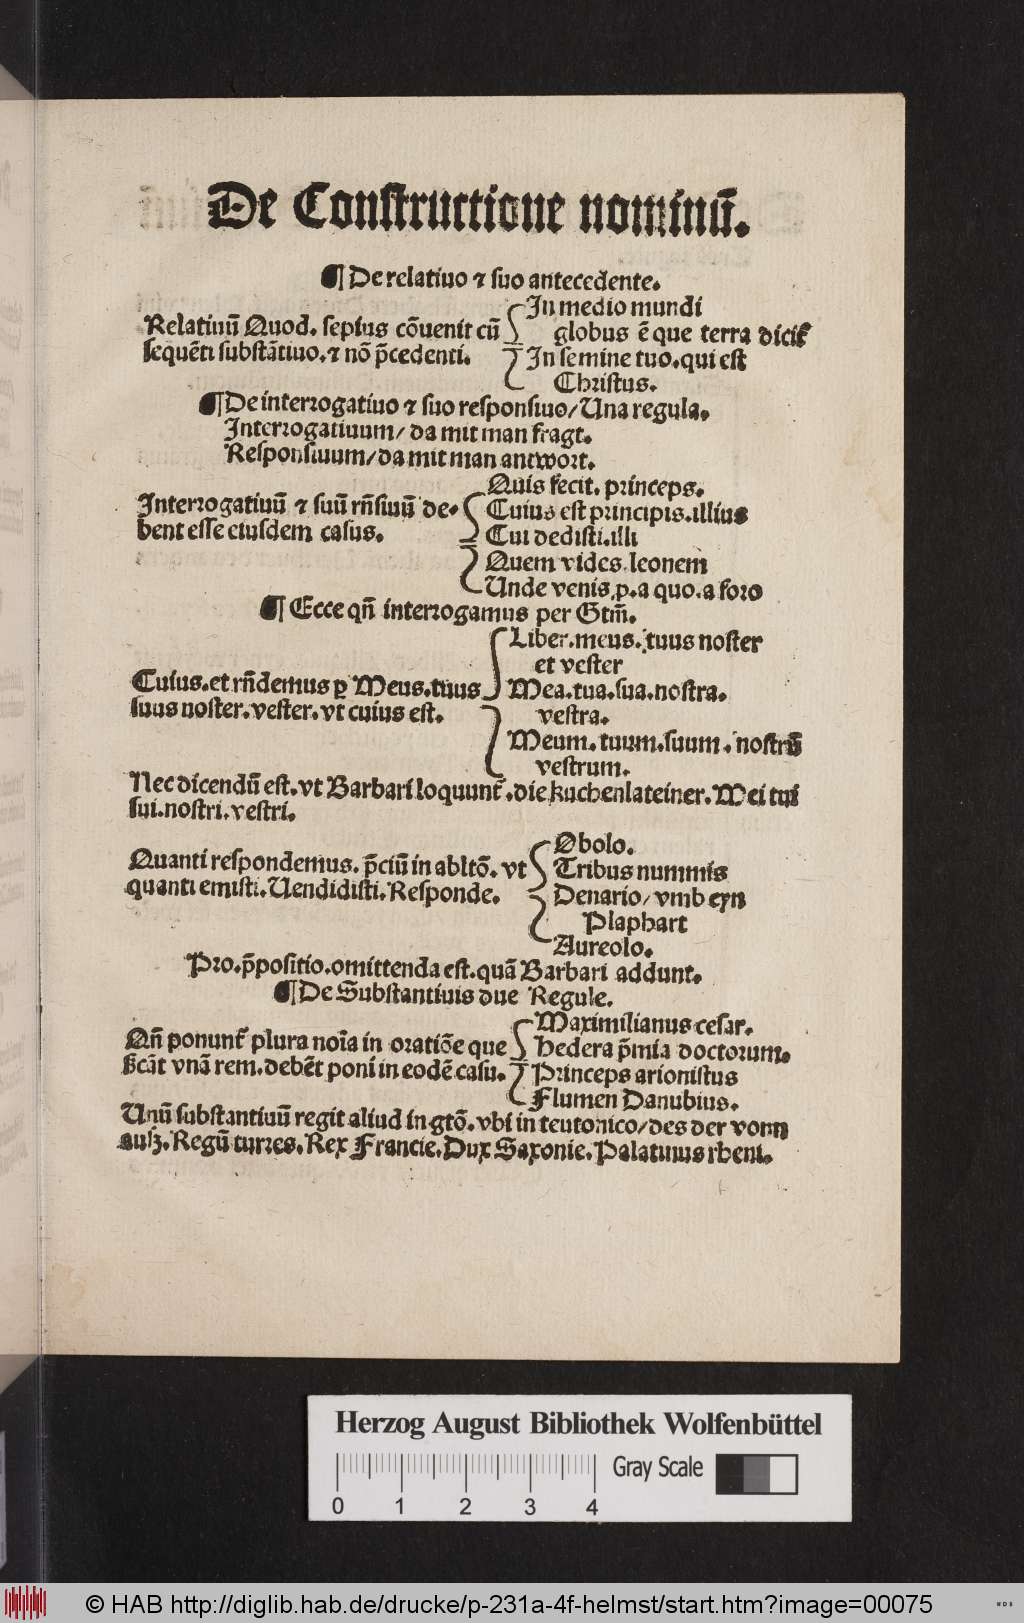 De Constructione nominū.
¶ De relatiuo ⁊ suo antecedente.
Relatiuū Quod. sepius cōuenit cū
sequēti substātiuo. ⁊ nō p̄cedenti.
In medio mundi
globus ē que terra dicit᷑
In semine tuo. qui est
Christus.
¶ De interrogatiuo ⁊ suo responsiuo/ Una regula.
Interrogatiuum/ da mit man fragt.
Responsiuum/ da mit man antwort.
Interrogatiuū ⁊ suū rn̄siuū de-
bent esse eiusdem casus.
Quis fecit. princeps.
Cuius est principis. illius
Cui dedisti. illi
Quem vides. leonem
Unde venis. p. a quo. a foro
¶ Ecce qn̄ interrogamus per Gtm̄.
Cuius. et rn̄demus ꝑ Meus. tuus
suus noster. vester. vt cuius est.
Liber. meus. tuus noster
et vester
Mea. tua. sua. nostra.
vestra.
Meum. tuum. suum. nostrū
vestrum.
Nec dicendū est. vt Barbari loquunt᷑. die kuchenlateiner. Mei tui
sui. nostri. vestri.
Quanti respondemus. p̄ciū in abltō. vt
quanti emisti. Uendidisti. Responde.
Obolo.
Tribus nummis
Denario/ vmb eyn
Plaphart
Aureolo.
Pro. p̄positio. omittenda est. quā Barbari addunt.
¶ De Substantiuis due Regule.
Qn̄ ponunt᷑ plura noīa in oratiōe que
s̄cāt vnā rem. debēt poni in eodē casu.
Maximilianus cesar.
Hedera p̄mia doctorum.
Princeps arionistus
Flumen Danubius.
Unū substantiuū regit aliud in gtō. vbi in teutonico/ des der vonn
ausz. Regū turres. Rex Francie. Dux Saxonie. Palatinus rheni.
Herzog August Bibliothek Wolfenbüttel
Gray Scale
0 1 2 3 4
© HAB http://diglib.hab.de/drucke/p-231a-4f-helmst/start.htm?image=00075